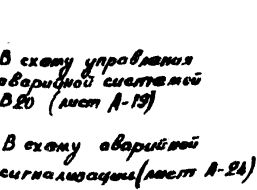 В схему управления
аварийной системой
В20 (лист А-19)
В схему аварийной
сигнализации (лист А-24)